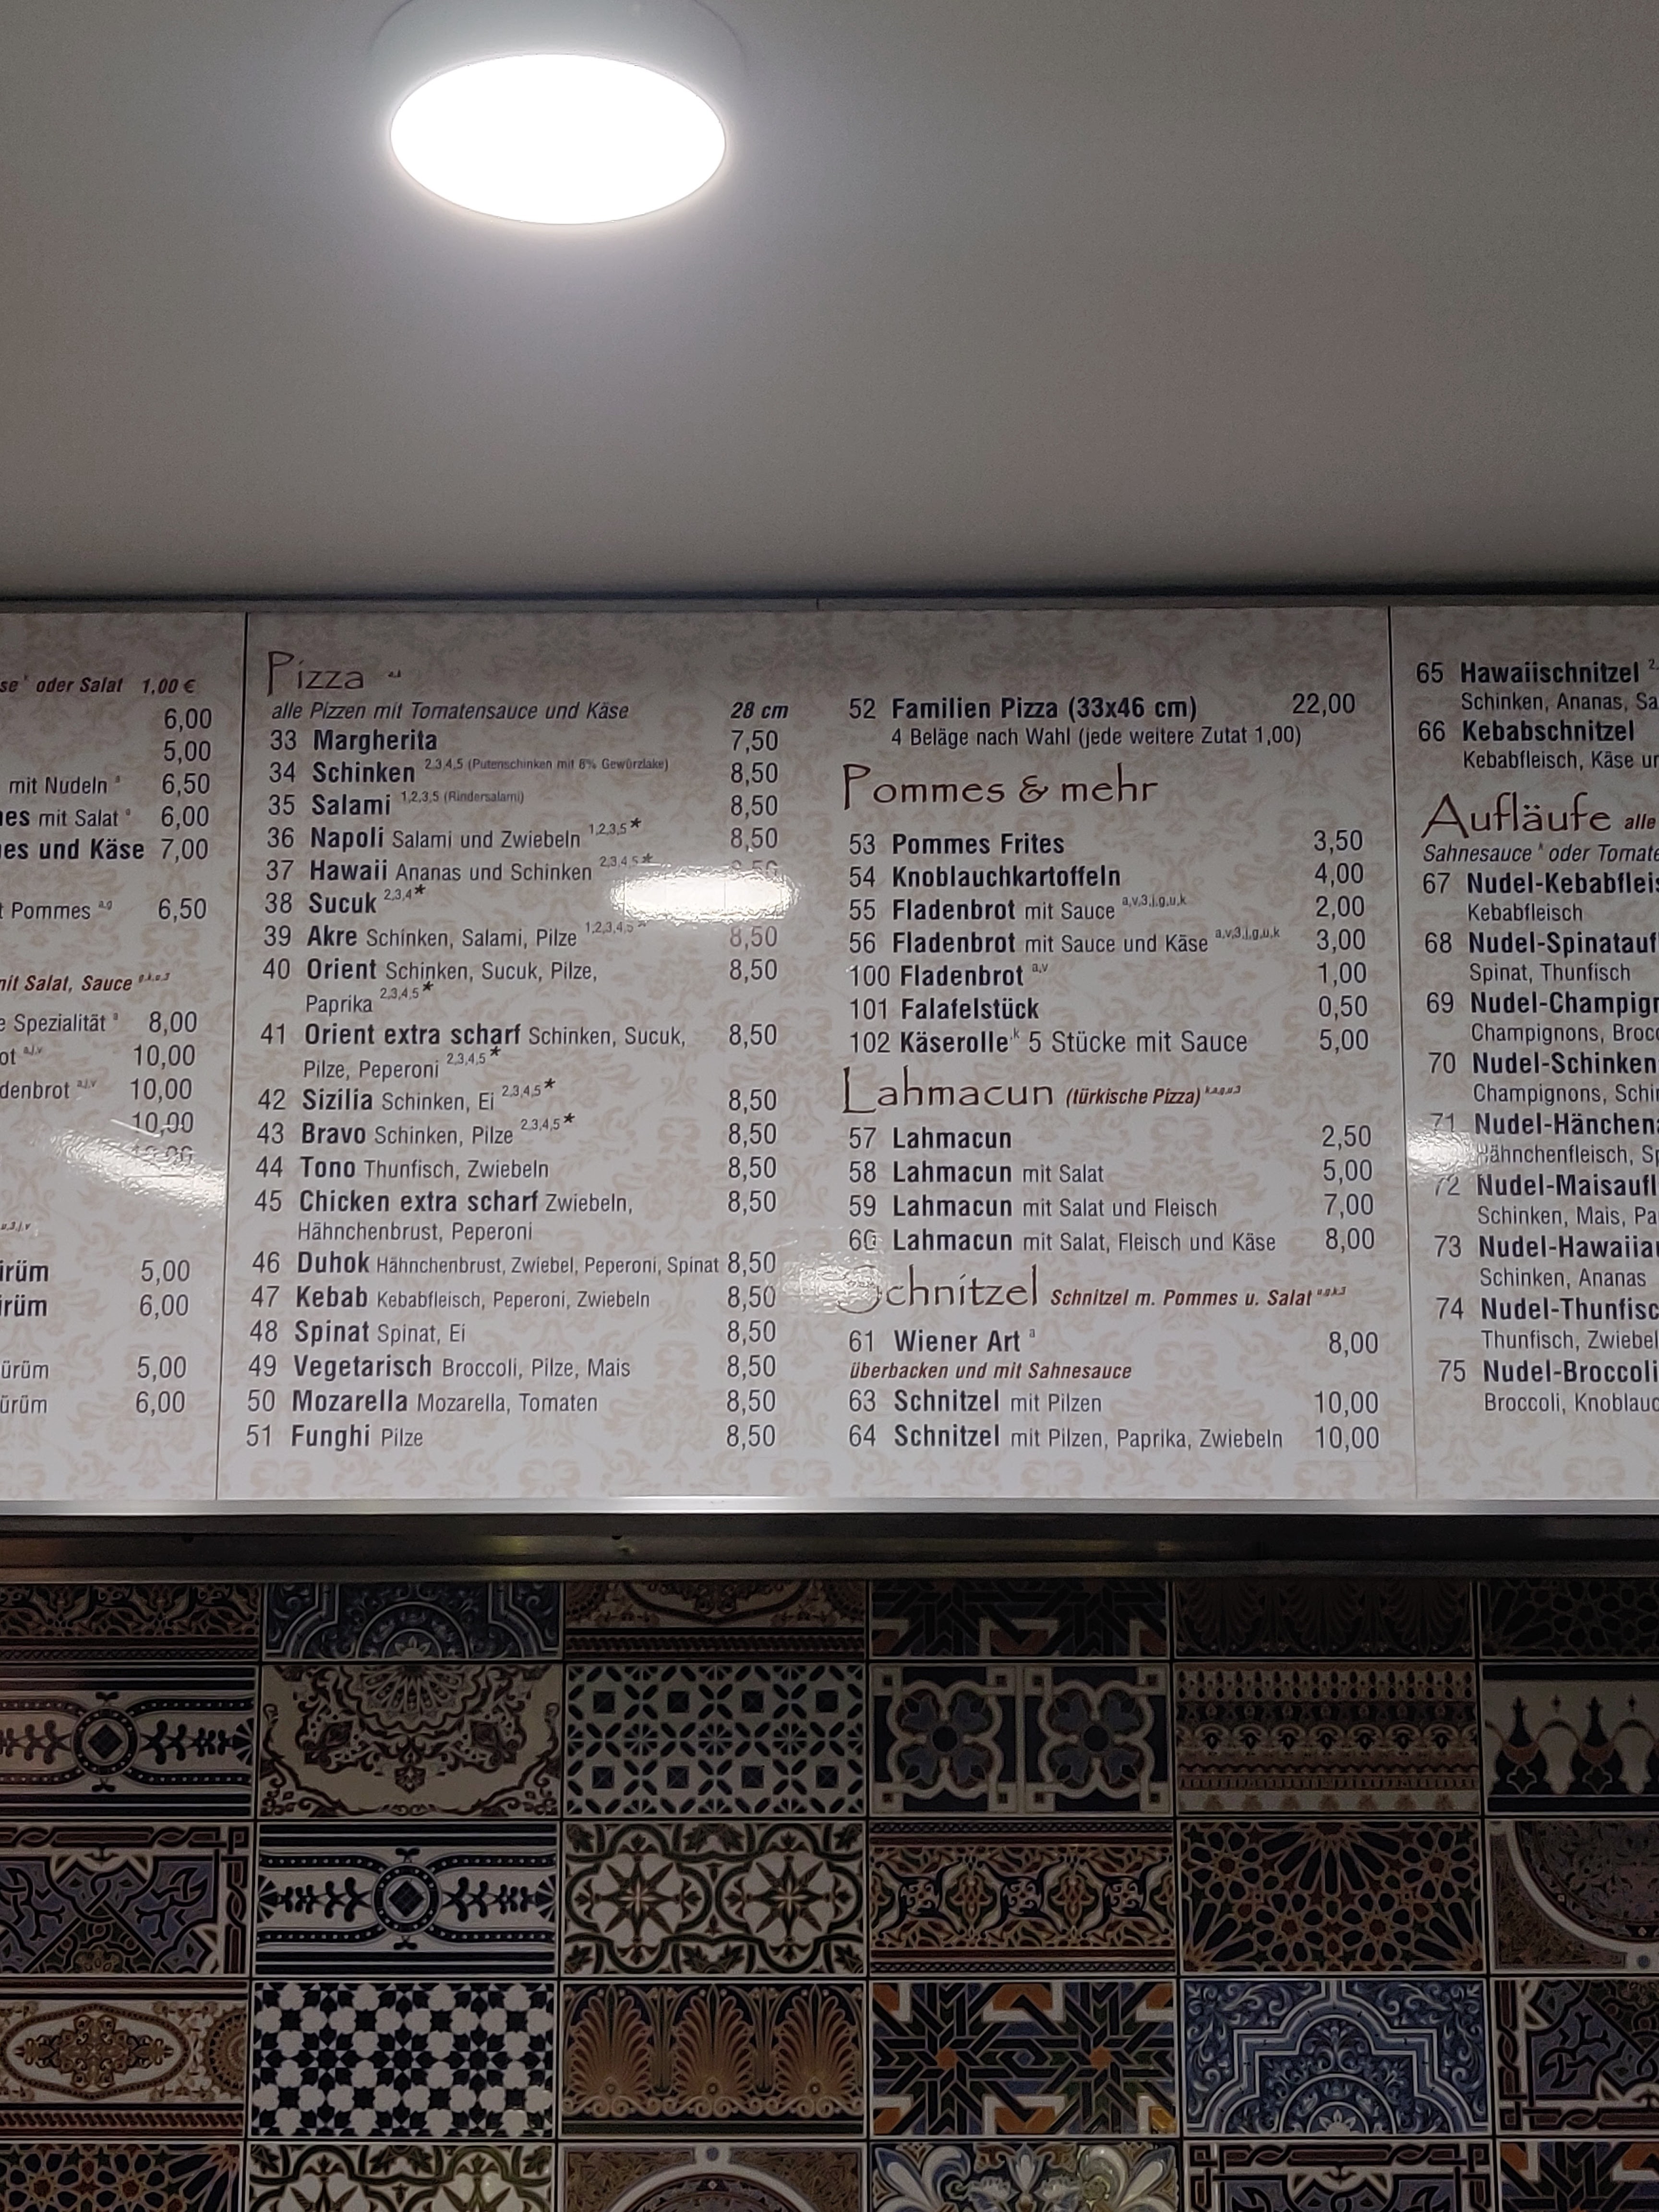 oder Salat 1,00 €
6,00
5,00
mit Nudeln a 6,50
mit Salat 6,00
und Käse 7,00
Pommes a,g 6,50
Salat, Sauce
Spezialität 8,00
10,00
10,00
10,00
5,00
6,00
5,00
6,00
Pizza
alle Pizzen mit Tomatensauce und Käse 28 cm
33 Margherita 7,50
34 Schinken 2,3,4,5 (Putenschinken mit 8% Gewürzlake) 8,50
35 Salami 1,2,3,5 (Rindersalami) 8,50
36 Napoli Salami und Zwiebeln 1,2,3,5* 8,50
37 Hawaii Ananas und Schinken 2,3,4,5* 8,50
38 Sucuk 2,3,4*
39 Akre Schinken, Salami, Pilze 1,2,3,4,5* 8,50
40 Orient Schinken, Sucuk, Pilze, 8,50
Paprika 2,3,4,5*
41 Orient extra scharf Schinken, Sucuk, 8,50
Pilze, Peperoni 2,3,4,5*
42 Sizilia Schinken, Ei 2,3,4,5* 8,50
43 Bravo Schinken, Pilze 2,3,4,5* 8,50
44 Tono Thunfisch, Zwiebeln 8,50
45 Chicken extra scharf Zwiebeln, 8,50
Hähnchenbrust, Peperoni
46 Duhok Hähnchenbrust, Zwiebel, Peperoni, Spinat 8,50
47 Kebab Kebabfleisch, Peperoni, Zwiebeln 8,50
48 Spinat Spinat, Ei 8,50
49 Vegetarisch Broccoli, Pilze, Mais 8,50
50 Mozarella Mozarella, Tomaten 8,50
51 Funghi Pilze 8,50
52 Familien Pizza (33x46 cm) 22,00
4 Beläge nach Wahl (jede weitere Zutat 1,00)
Pommes & mehr
53 Pommes Frites 3,50
54 Knoblauchkartoffeln 4,00
55 Fladenbrot mit Sauce a,v,3,j,g,u,k 2,00
56 Fladenbrot mit Sauce und Käse a,v,3,j,g,u,k 3,00
100 Fladenbrot a,v 1,00
101 Falafelstück 0,50
102 Käserolle k 5 Stücke mit Sauce 5,00
Lahmacun (türkische Pizza)
57 Lahmacun 2,50
58 Lahmacun mit Salat 5,00
59 Lahmacun mit Salat und Fleisch 7,00
60 Lahmacun mit Salat, Fleisch und Käse 8,00
Schnitzel Schnitzel m. Pommes u. Salat
61 Wiener Art a 8,00
überbacken und mit Sahnesauce
63 Schnitzel mit Pilzen 10,00
64 Schnitzel mit Pilzen, Paprika, Zwiebeln 10,00
65 Hawaiischnitzel
Schinken, Ananas,
66 Kebabschnitzel
Kebabfleisch, Käse
Aufläufe alle
Sahnesauce k oder
67 Nudel-
Kebabfleisch
68 Nudel-
Spinat, Thunfisch
69 Nudel-
Champignons,
70 Nudel-Schinken
Champignons,
71 Nudel-
Hähnchenfleisch,
72 Nudel-
Schinken, Mais,
73 Nudel-
Schinken, Ananas
74 Nudel-
Thunfisch,
75 Nudel-Broccoli
Broccoli,